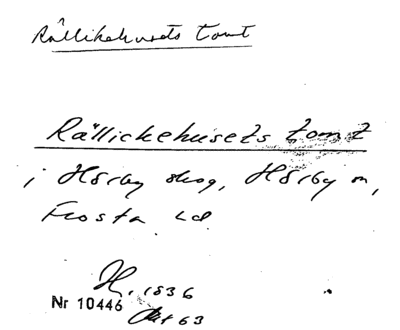 Rållikehusets tomt
Rällickehusets tomt
i Hörby skog, Hörby sn,
Frosta hd
H. 1936
Nr 10446
Okt 63